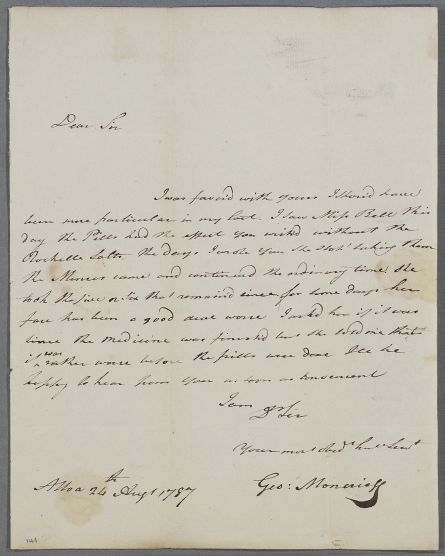 Dear Sir
I was favor'd with yours I shou'd have
been more particular in my last. I saw Miss Bell this
day the Pills had the effect you wish'd without the
Rochelle Salts. The days I wrote you she stop'd taking them
the Menses came and continued the ordinary time she
took the five that remain'd since for some days her
face has been a good deal worse I asked her if it was
since the medicine was finish'd but she told me that
it was rather worse before the pills were done I'll be
happy to hear from you as soon as convenient
I am
Dr Sir
Your most Obedt hule Servt
Alloa 24th Augt 1787
Geo: Moncrieff